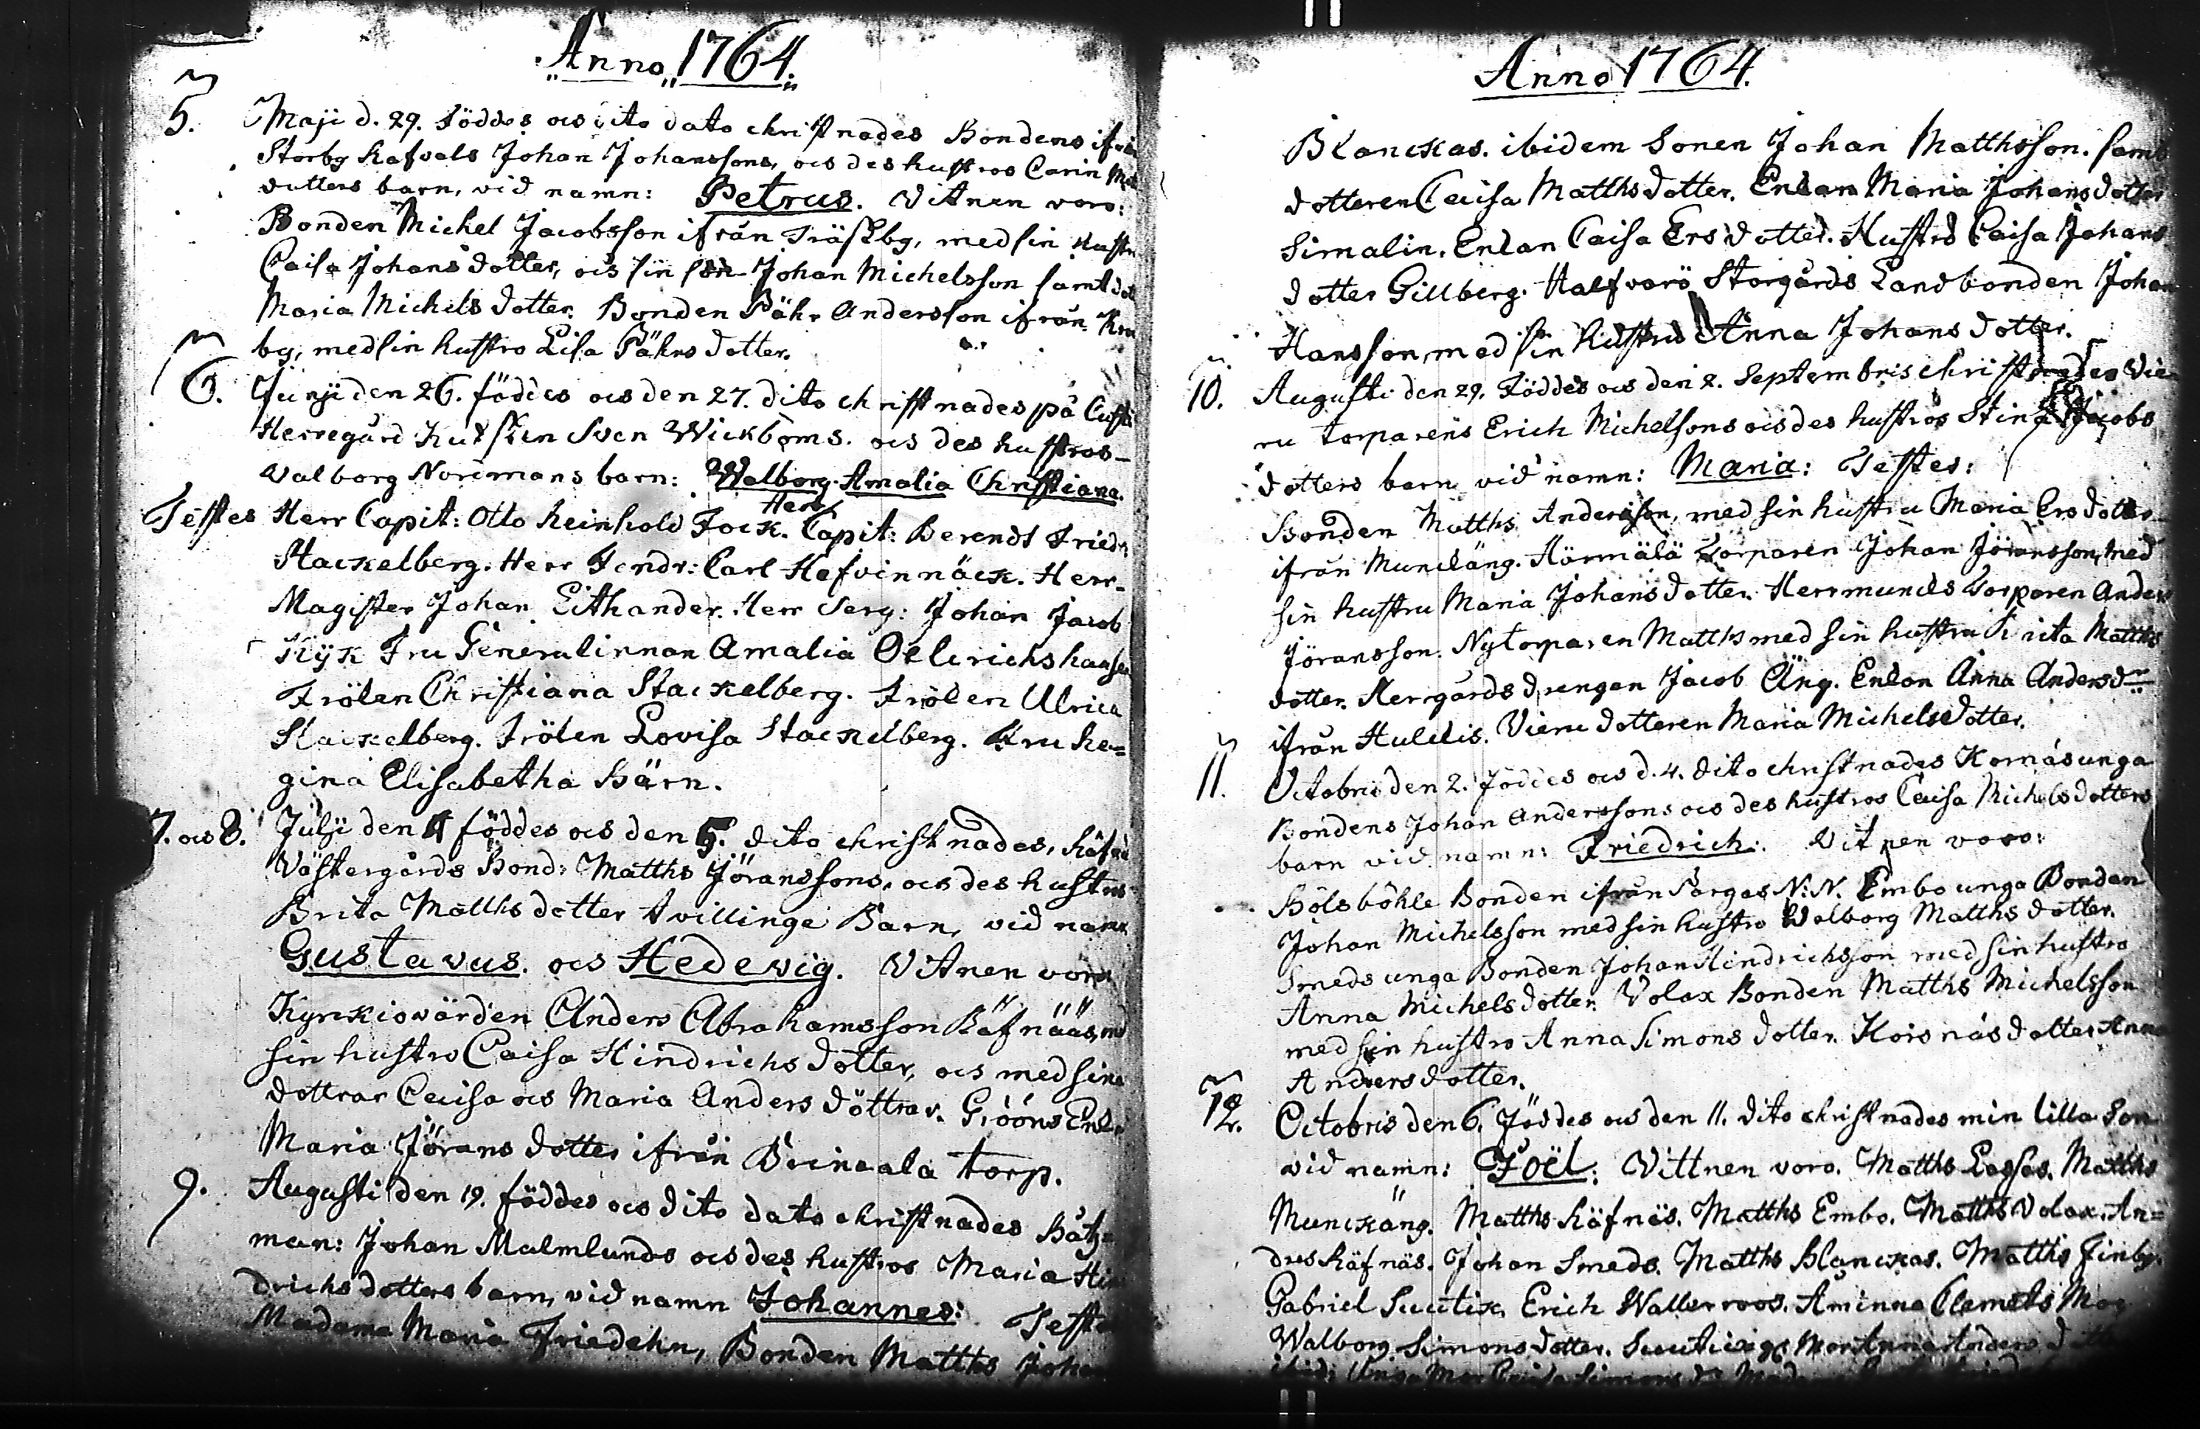 Anno 1764.
5. Maji d. 29. Föddes ocs dito dato christnades Bondens ifrån
Storby Kafvals Johan Johanssons, ocs des hustros Carin
dotters barn, vid namn: Petrus. Vitnen voro:
Bonden Michel Jacobsson ifrån Träskby, med sin hustru
Caisa Johans dotter, ocs sin son Johan Michelsson samt dot
Maria Michels dotter. Bonden Pähr Andersson ifrån
by, med sin hustro Lisa Pährs dotter.
6. Junji den 26. föddes ocs den 27. dito christnades på
Herregård Kusken Sven Wickboms. ocs des hustros
Valborg Norrmans barn: Walborg Amalia Christiana.
Testes Herr Capit: Otto Reinhold Fock. Herr Capit: Berendt Fried:
Stackelberg. Herr Fendr: Carl Hefvinnäck. Herr
Magister Johan Eithander. Herr Serg: Johan Jacob
Kÿk Fru Generalinnan Amalia Oelrichshausen
Frölen Christiana Stackelberg. Frölen Ulrica
Stackelberg. Frölen Lovisa Stackelberg. Fru Re=
gina Elisabetha Bärn.
7. ocs 8. Julji den 4 föddes ocs den 5. dito christnades,
Västergårds Bond: Matths Jöranssons, ocs des hustros
Brita Matthsdotter tvillinge Barn, vid namn
Gustavus. ocs Hedevig. Vitnen voro
Kyrckiovärden Anders Abrahamsson Räfnääs, med
sin hustro Caisa Hindrichs dotter, ocs med sina
dottrar Caisa ocs Maria Anders döttrar. Grööns Enk
Maria Jörans dotter ifrån Brinaala torp.
9. Augusti den 19. föddes ocs dito dato christnades Båtz=
man: Johan Malmlunds ocs des hustros Maria Hin
drichs dotters barn, vid namn Johannes: Testes
Madame Maria Friedehn, Bonden Matths Johan
Anno 1764.
Blanckas. ibidem Sonen Johan Matthsson. samt
dotteren Caisa Matths dotter. Enkan Maria Johans dotter
Simalin. Enkan Caisa Ers dotter. Hustro Caisa Johans
dotter Gillberg. Halfvarö Storgårds Landbonden Johan
Hansson, med sin hustru Anna Johans dotter.
10. Augusti den 29. Föddes ocs den 2. Septembris christnades Vie
ru torparens Erich Michelsons ocs des hustros Stina Jacobs
dotters barn vid namn: Maria: Testes:
Bonden Matths Andersson, med sin hustru Maria Ers dotter
ifrån Munckäng. Härmälä Torparen Johan Jöransson, med
sin hustru Maria Johans dotter. Herrmunds Torparen Anders
Jöransson. Nytorparen Matths med sin hustru Brita Matths
dotter. Herrgårds drengen Jacob Äng. Enkan Anna Andersdr
ifrån Huldis. Vieru dotteren Maria Michelsdotter.
11. Octobris den 2. Föddes ocs d. 4. dito christnades Kornäs unga
Bondens Johan Anderssons ocs des hustros Caisa Michelsdotters
barn vid namn: Friedrich: Vitnen voro:
Bölsböhle Bonden ifrån Pargas N:N. Embo unga Bonden
Johan Michelsson med sin hustro Walborg Matths dotter.
Smeds unga Bonden Johan Hindrichsson med sin hustro
Anna Michelsdotter. Volax Bonden Matths Michelsson
med sin hustro Anna Simons dotter. Kornäs dotter Anna
Anders dotter.
12. Octobris den 6. Föddes ocs den 11. dito christnades min lilla Son
vid namn: Joël: Vittnen voro. Matths Lasses. Matths
Munckäng. Matths Räfnäs. Matths Embo. Matths Volax. An=
dres Räfnäs. Johan Smeds. Matths Blanckas. Matths Finby.
Gabriel Suutix. Erich Wallerroos. Aminne Clemets Mor
Walborg Simons dotter. Mor Anna Anders dotter
ibid: Unga Mor Caisa Simons